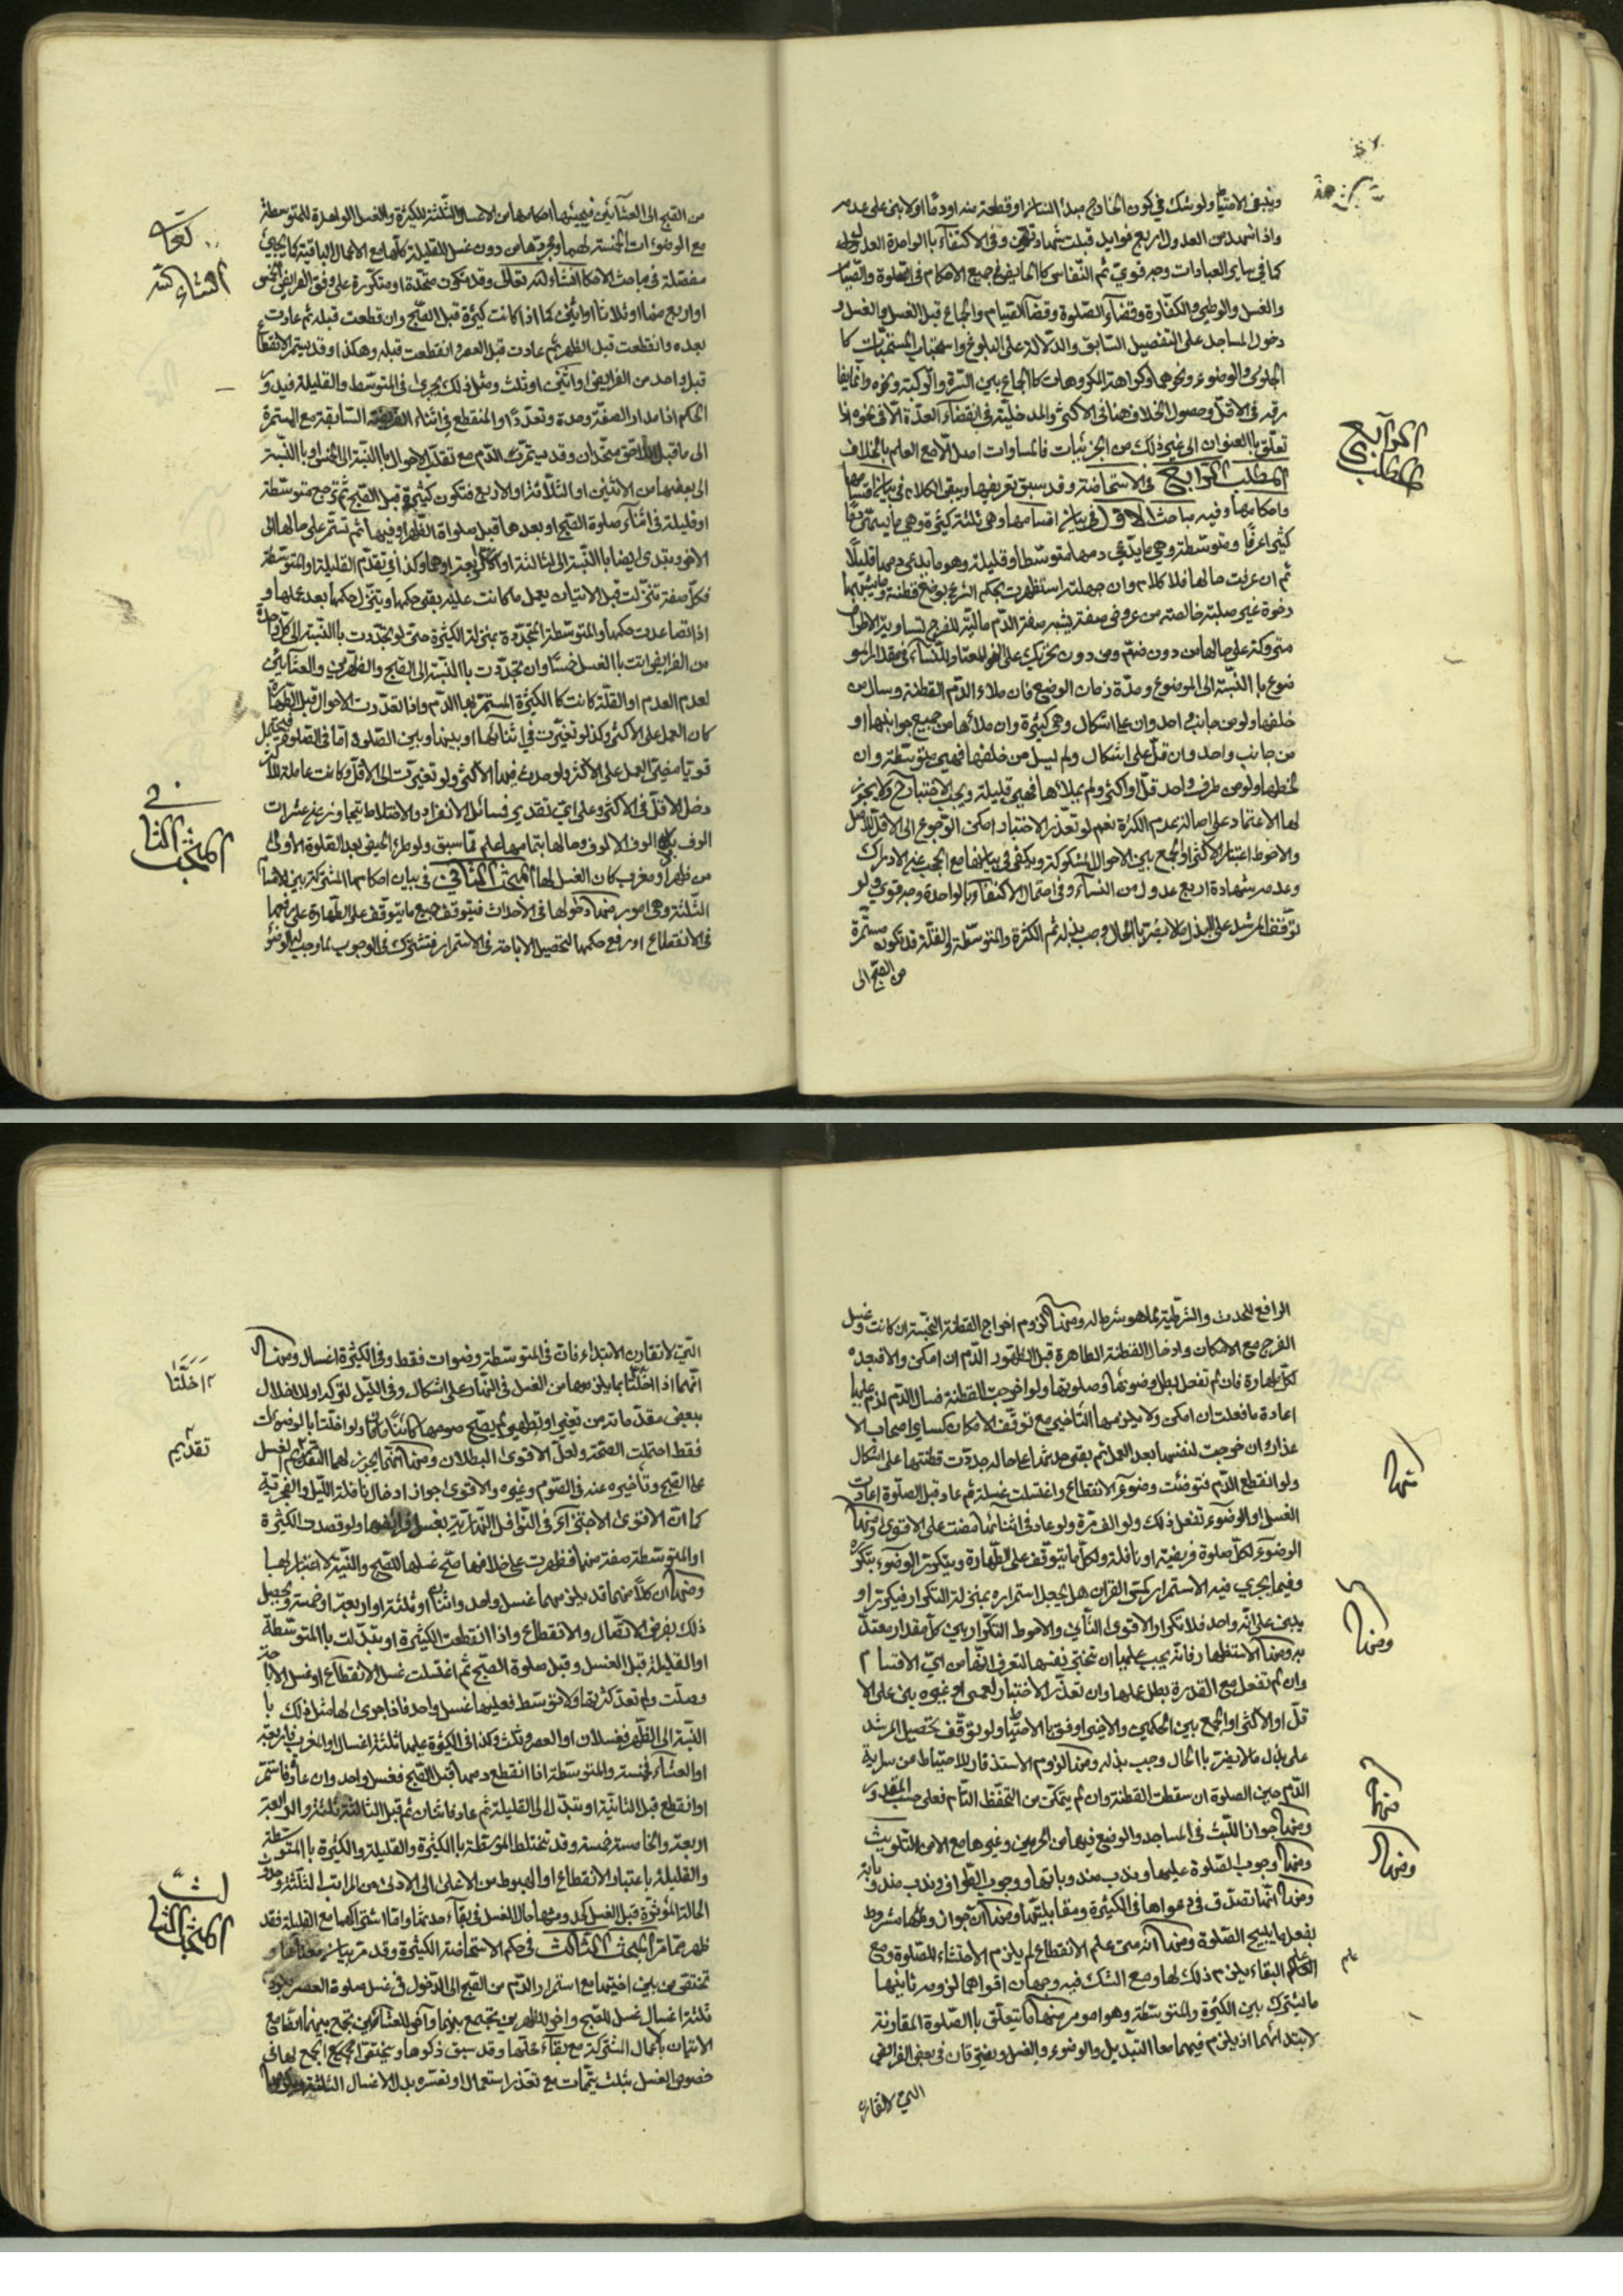 وينبغي الاحتياط ولو شك في كون الخارج مبدأ انسان او قطعة منه او دما او لا بنى على عدمه
واذا شهد من العدول اربع قوابل قبلت شهادتهن وفي الاكتفاء بالواحدة العدل
كما في ساير العبادات وجه قوي ثم النفاس كالحايض في جميع الاحكام في الصلوة والصيام
والغسل والوطي والكفارة وقضاء الصلوة وقضاء الصيام والجماع قبل الغسل والغسل و
دخول المساجد على التفصيل السابق والدلالة على البلوغ واستحباب المستحبات كا
لجلوس والوضوء ونحوهما وكراهة المكروهات كالجماع بين السرة والركبة ونحوه وانما يفا
رقه في الاقل وحصول الخلاف هنا في الاكثر والمدخلية في انقضاء العدة الا في نحوه اذا
تعلق بالعنوان الى غير ذلك من الجزئيات فالمساوات اصل الا مع العلم بالخلاف
المطلب الرابع في الاستحاضة وقد سبق تعريفها وبقى الكلام في بيان اقسامها
واحكامها وفيه مباحث الاول في بيان اقسامها وهي ثلثة كثيرة وهي ما يسمى دمها
كثيرا عرفا ومتوسطة وهي ما يدعى دمها متوسطا وقليلة وهو ما يدعى دمها قليلا
ثم ان عرفت حالها فلا كلام وان جهلته استظهرت بحكم الشرع بوضع قطنة وما يشبهها
رخوة غير صلبة خالصة من عروض صفة يشبه صفة الدم مالية للفرج
متروكة على حالها من دون ضم ومن دون تحريك على النحو المعتاد للنساء في مقدار المو
ضوع بالنسبة الى الموضوع ومدة زمان الوضع فان ملاء الدم القطنة وسال من
خلفها ولو من جانب واحد وان على اشكال وهي كثيرة وان ملاءها من جميع جوانبها او
من جانب واحد وان قل على اشكال ولم يسل من خلفها فهي متوسطة وان
لطخها ولو من طرف واحد قل او اكثر ولم يملاءها فهي قليلة ويجب الاختبار ولا يجوز
لها الاعتماد على اصالة عدم الكثرة نعم لو تعذر الاختبار امكن الرجوع الى الاقل للاصل
والاحوط اعتبار الاكثر او الجمع بين الاحوال المشكوكة ويكفي في بيانها مع الحجب عن الادراك
وعدمه شهادة اربع عدول من النساء وفي احتمال الاكتفاء بالواحدة وجه قوي ولو
توقف المرشد على البذل ما لا يضر بالحال وجب بذله ثم الكثرة والمتوسطة والقلة قد تكون مستمرة
من الصبح الى
الرابع
المطلب
من الصبح الى العشائين فيجيئها احكامها من الاغسال الثلثة للكثيرة والغسل الواحدة للمتوسطة
مع الوضوءات الخمسة لهما ومجردها من دون غسل للقليلة كلها مع الاعمال الباقية كما يجيئ
مفصلة في مباحث الاحكام انشاء الله تعالى وقد تكون متحدة او متكررة على وفق الفرايض الخمس
او اربع منها او ثلاث او اثنين كما اذا كانت كثيرة قبل الصبح وان قطعت قبله ثم عادت
بعده وانقطعت قبل الظهر ثم عادت قبل العصر وانقطعت قبله وهكذا وقد يستمر الانقطاع
قبل واحد من الفرايض او اثنين او ثلث ومثل ذلك يجرى في المتوسط والقليلة فيدور
الحكم اذا مدار الصفة وحدة وتعددا والمنقطع في اثناء السابقة مع المستمرة
الى ما قبل اللاحق متحدان وقد يستمر الدم مع تعدد الاحوال بالنسبة الى الخمس او بالنسبة
الى بعضها من الاثنين او الثلاثة او الاربع فتكون كثيرة قبل الصبح ثم ترجع متوسطة
او قليلة في اثناء صلوة الصبح او بعدها قبل صلواة الظهر او فيها ثم تستمر على حالها الى
الاخر ويبتدى ايضا بالنسبة الى الثالثة او الرابعة او هما وكذا في تقدم القليلة او المتوسطة
فكل صفة تنزلت قبل الاتيان بعمل ما كانت عليه بقى حكمها ويتنزل حكمها بعد عملها و
اذا تصاعدت حكمها والمتوسطة المتجددة بمنزلة الكثيرة حتى لو تجددت بالنسبة الى كل واحدة
من الفرايض اتت بالغسل خمسا وان تجددت بالنسبة الى الصبح والظهرين والعشائين
لعدم العدم او القلة كانت كالكثيرة المستمر بها الدم واذا تعددت الاحوال قبل الطهارة
كان العمل على الاكثر وكذا لو تغيرت في اثنائها او بينها وبين الصلوة اما في الصلوة فيحتمل
قويا مضى العمل على الاكثر ولو حدث فيها الاكثر ولو تغيرت الى الاقل وكانت عاملة للاكثر
دخل الاقل في الاكثر وعلى اي تقدير فمسائل الانفراد والاختلاط تتجاوز عن عشرات
الوف بل الوف الالوف وحالها بتمامها علم مما سبق ولو طرء الحيض بعد الصلوة الاولى
من ظهر او مغرب كان الغسل لها المبحث الثاني في بيان احكامها المشتركة بين الاقسام
الثلثة وهي امور منها دخولها في الاحداث فيتوقف جميع ما يتوقف على الطهارة على رفعها
في الانقطاع او رفع حكمها لتحصيل الاباحة في الاستمرار فتشترك في الوجوب بما وجب له الوضوء
انشاء الله
في
المبحث الثا
الرافع للحدث والشرطية بما هو شرط له ومنها لزوم اخراج القطنة النجسة ان كانت وغسل
الفرج مع الامكان وادخال القطنة الطاهرة قبل الدم ان امكن والا فبعده
لكل طهارة فان لم تفعل بطل وضوئها وصلوتها ولو اخرجت القطنة فسال الدم لزم عليها
اعادة ما فعلت ان امكن ولا يلزمها التاخير مع توقف الامكان كساير اصحاب الا
عذار وان خرجت لنفسها بعد العمل ثم بقى حدثها على حاله جددت قطنتها على اشكال
ولو انقطع الدم فتوضئت وضوء الانقطاع واغتسلت غسله ثم عاد قبل الصلوة اعادت
الغسل او الوضوء تفعل ذلك ولو الف مرة ولو عاد في اثنائها مضت على الاقوى ومنها
الوضوء لكل صلوة فريضة او نافلة ولكل ما يتوقف على الطهارة ويتكرر الوضوء بتكرره
وفيما يجرى فيه الاستمرار كمس القران هل يجعل استمراره بمنزلة التكرار فيكرر او
يبنى على انه واحد فلا تكرار والاقوى الثاني والاحوط التكرار بين كل مقدار معتد
به ومنها الاستظهار فانه يجب عليها ان تختبر نفسها لتعرف انها من اي الاقسام
وان لم تفعل مع القدرة بطل عملها وان تعذر الاختبار لعمى او غيره بنى على الا
قل او الاكثر او الجمع بين الحكمين والاخير اوفق بالاحتياط ولو توقف تحصيل المرشد
على بذل ما لا يضر بالحال وجب بذله ومنها لزوم الاستذفار للاحتياط من سراية
الدم حين الصلوة ان سقطت القطنة وان لم يتمكن من التحفظ التام فعلى حسب المقدور
ومنها جواز اللبث في المساجد والوضع فيها من الحرمين وغيرها مع الامن التلويث
ومنها وجوب الصلوة عليها وندب مندوباتها ووجوب الطواف وندب مندوبه
ومنها انها تصدق في دعواها في الكثيرة ومقابليها ومنها ان جواز وطيها مشروط
بفعل ما يبيح الصلوة ومنها انه متى علم الانقطاع لم يلزم الاحتشاء للصلوة ومع
البقاء يلزم ذلك لها ومع الشك فيه وجهان اقواهما لزومه ثانيها
ما يشترك بين الكثيرة والمتوسطة وهو امور منها ما يتعلق بالصلوة المقارنة
لابتدائهما اذ يلزم فيهما معا التبديل والوضوء والغسل ويفترقان في بعض الفرائض
التي لا تقارن
منها
ومنها
منها
ومنها
علم
التي لا تقارن الابتداء فان في المتوسطة وضوات فقط وفي الكثيرة اغسال ومنها
انهما اذا اخلتا بما يلزمهما من الغسل في النهار على اشكال وفي الليل لتركه او للاخلال
ببعض مقدماته من تغيير او تطهير لم يصح صومهما كائنا ما كان ولو اخلتا بالوضوءات
فقط احتملت الصحة ولعل الاقوى البطلان ومنها انهما يجوز لهما التقديم لغسل
على الصبح وتأخيره عنه في الصوم وغيره والاقوى جواز ادخال نافلة الليل والفجرية
كما ان الاقوى الاجتزاء في النوافل النهارية بغسل فرائضها ولو قصدت الكثيرة
او المتوسطة صفة منهما فظهرت على خلافها صح غسلها للصبح والنية لا اعتبار لها
ومنها ان كلا منهما قد يلزمهما غسل واحد واثنان او ثلثة او اربعة او خمسة ويحصل
ذلك بفرض الاتصال والانقطاع واذا انقطعت الكثيرة او تبدلت بالمتوسطة
او القليلة قبل الغسل وقبل صلوة الصبح ثم اغتسلت غسل الانقطاع او غسل الاباحة
وصلت ولم تعد كثرتها ولا توسط فعليها غسل واحد فاذا جرى لها مثل ذلك با
النسبة الى الظهر فغسلان او العصر فثلث وكذا في الكثيرة عليها ثلثة اغسال او المغرب فاربعة
او العشاء فخمسة والمتوسطة اذا انقطع دمها قبل الصبح فغسل واحد وان عاد فاستمر
او انقطع قبل الثانية او تبدل الى القليلة ثم عاد فاثنان ثم قبل الثالثة فثلثة والرابعة
اربعة والخامسة خمسة وقد تختلط المتوسطة بالكثيرة والقليلة والكثيرة بالمتوسطة
والقليلة باعتبار الانقطاع او الهبوط من الاعلى الى الادنى من المراتب الثلثة
الحالة المؤثرة قبل الغسل كحدوثها حال الغسل في بقاء حدثها واما اشتراكهما مع القليلة فقد
ظهر مما مر المبحث الثالث في حكم الاستحاضة الكثيرة وقد مر بيان معناها و
تختص من بين اختيها مع استمرار الدم من الصبح الى الدخول في غسل صلوة العصر
ثلثة اغسال غسل للصبح واخر للظهرين تجمع بينهما وآخر للعشائين تجمع بينهما ايضا مع
الاتيان بالاعمال المشتركة مع بقاء علتها وقد سبق ذكرها ويختص الجمع لها في
خصوص الغسل بثلث تيممات مع تعذر استعمال او تعسره بدل الاغسال الثلثة
اخلتا
تقديم
لث
المبحث الثا